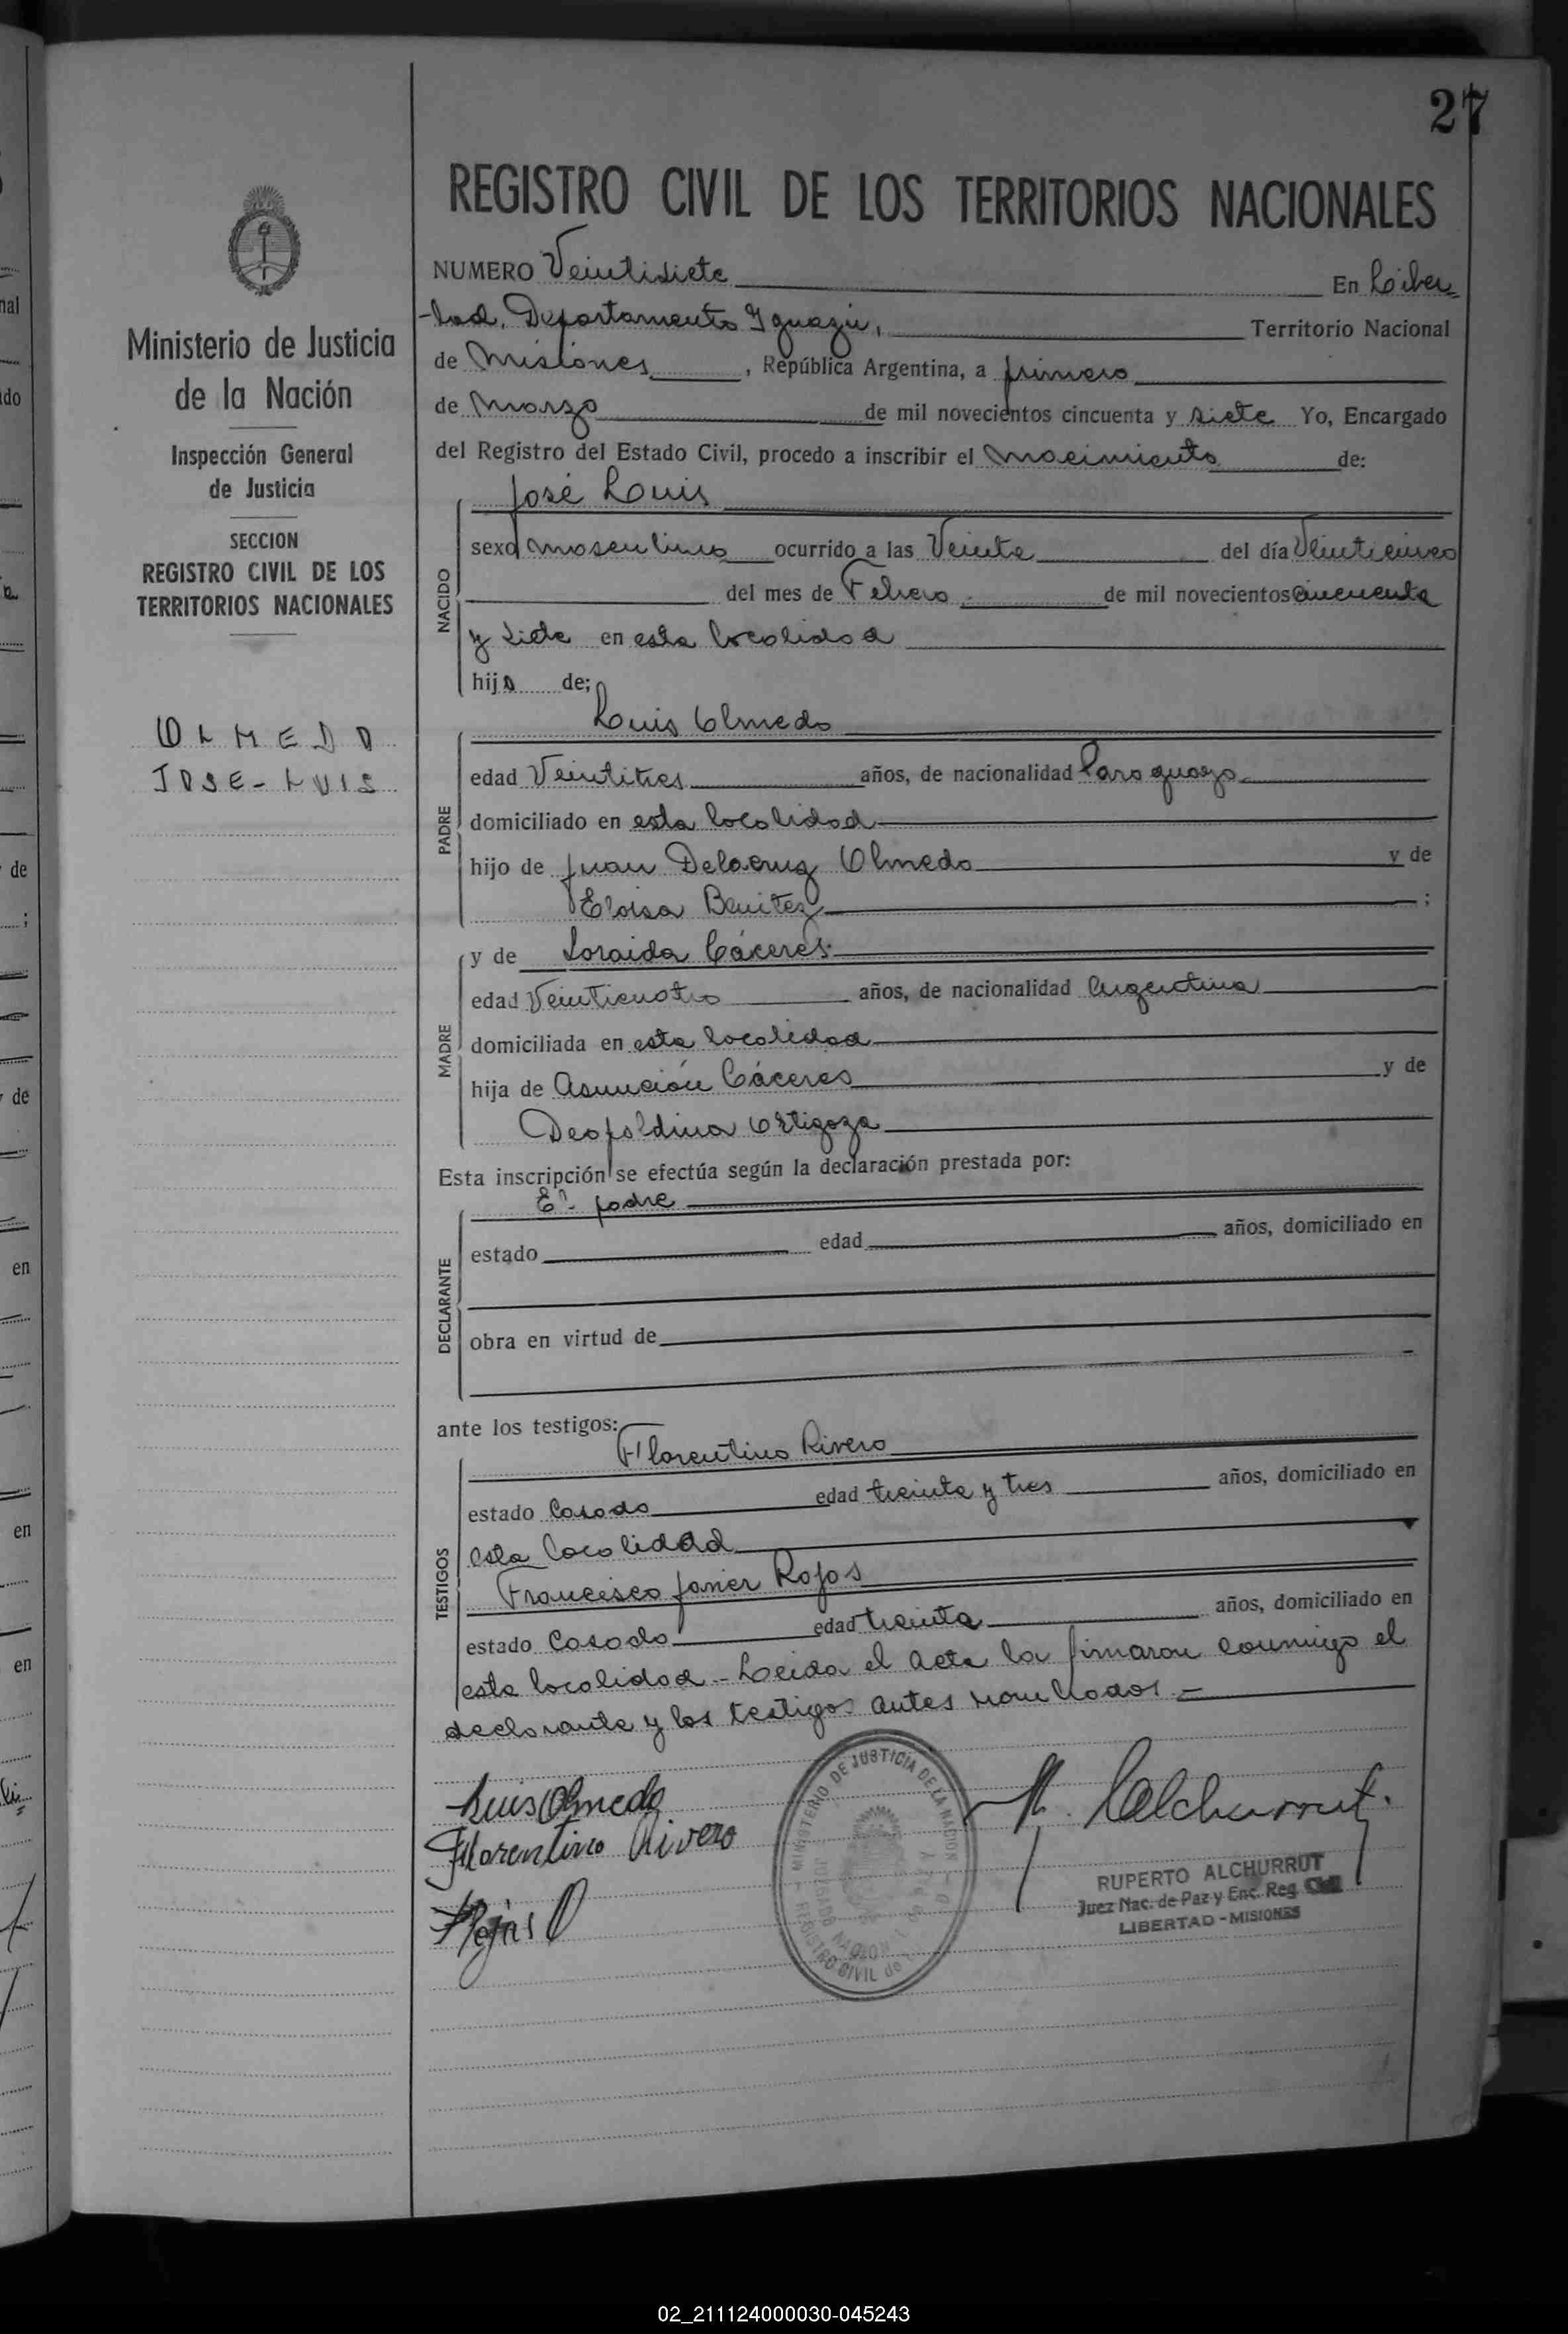 27
REGISTRO CIVIL DE LOS TERRITORIOS NACIONALES
NUMERO Veintisiete En Liber=
-tad, Departamento Iguazú, Territorio Nacional
de Misiones, República Argentina, a primero
de Marzo de mil novecientos cincuenta y siete Yo, Encargado
del Registro del Estado Civil, procedo a inscribir el nacimiento de:
José Luis
sexo masculino ocurrido a las Veinte del día Veinticinco
del mes de Febrero de mil novecientos cincuenta
y siete en esta localidad
hijo de;
NACIDO
Luis Olmedo
edad Veintitres años, de nacionalidad Paraguayo
domiciliado en esta localidad
hijo de Juan Delacruz Olmedo y de
Eloisa Benitez ;
PADRE
y de Soraida Cáceres
edad Veinticuatro años, de nacionalidad Argentina
domiciliada en esta localidad
hija de Asunción Cáceres y de
Deopoldina Ortigoza
MADRE
Esta inscripción se efectúa según la declaración prestada por:
El padre
estado edad años, domiciliado en
obra en virtud de
DECLARANTE
ante los testigos:
Florentino Rivero
estado Casado edad treinta y tres años, domiciliado en
esta localidad
Francisco Javier Rojas
estado Casado edad treinta años, domiciliado en
esta localidad - Leida el acta la firmaron conmigo el
declarante y los testigos antes nombrados.-
TESTIGOS
Luis Olmedo
Florentino Rivero
Rojas
MINISTERIO DE JUSTICIA DE LA NACION
REGISTRO CIVIL
R. Alchurrut.
RUPERTO ALCHURRUT
Juez Nac. de Paz y Enc. Reg. Civil
LIBERTAD - MISIONES
Ministerio de Justicia
de la Nación
Inspección General
de Justicia
SECCION
REGISTRO CIVIL DE LOS
TERRITORIOS NACIONALES
OLMEDO
JOSE-LUIS
02_211124000030-045243